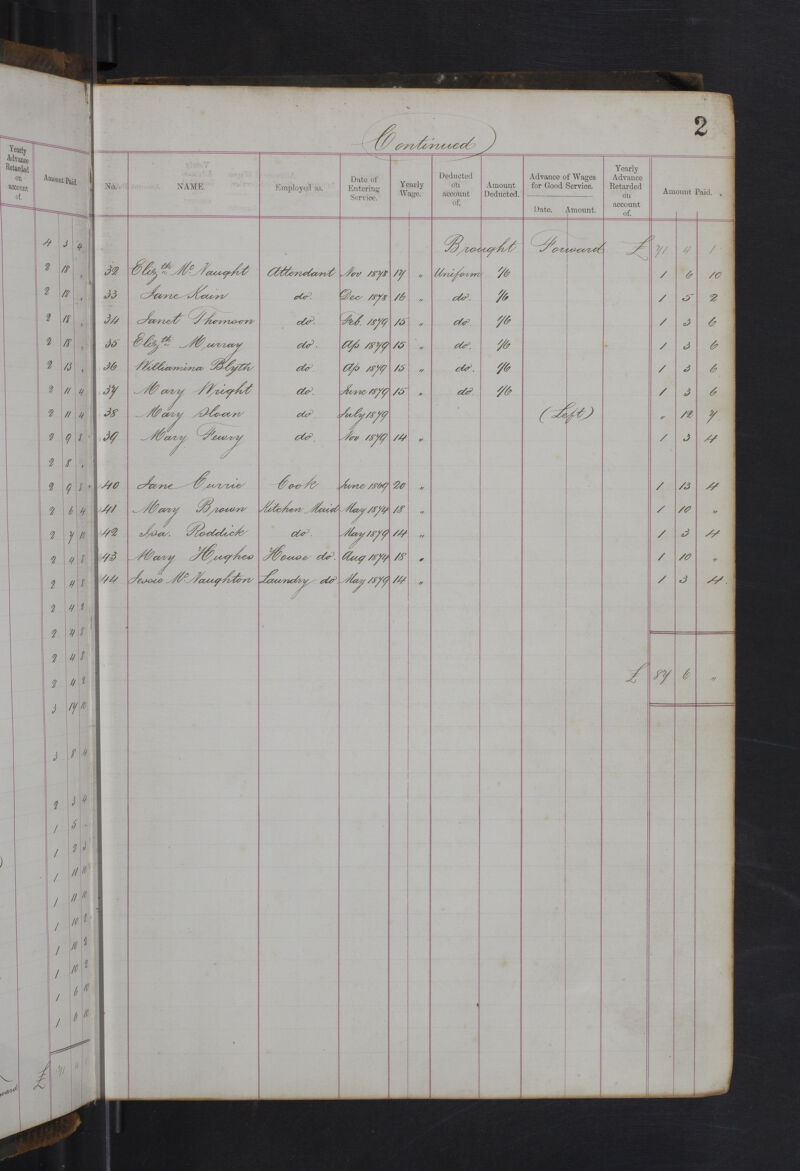 2
Continued
No. NAME Employed as. Date of Entering Service. Yearly Wage. Deducted on account of. Amount Deducted. Advance of Wages for Good Service. Date. Amount. Yearly Advance Retarded on account of. Amount Paid.
Brought Forward £ 71 4 1
32 Elizth Mc Naught Attendant Nov 1878 17 " Uniform 1/6 1 6 10
33 Jane Kain do. Dec 1878 16 " do. 1/6 1 5 2
34 Janet Thomson do. Feb. 1879 15 " do 1/6 1 3 6
35 Elizth Murray do Ap 1879 15 " do. 1/6 1 3 6
36 Williamina Blyth do Ap 1879 15 " do. 1/6 1 3 6
37 Mary Wright do. June 1879 15 " do 1/6 1 3 6
38 Mary Sloan do July 1879 (Left) " 12 7
39 Mary do. Nov 1879 14 " 1 3 4
40 Jane Currie Cook June 1869 20 " 1 13 4
41 Mary Brown Kitchen Maid May 1874 18 " 1 10 "
42 Isa. Roddick do. May 1879 14 " 1 3 4
43 Mary Hughes House do. Aug 1874 18 " 1 10 "
44 Jessie Mc Naughton Laundry do May 1879 14 " 1 3 4.
£ 87 6 "
Yearly Advance Retarded on account of. Amount Paid.
4 3 4
2 18 "
2 18 "
2 18 "
2 18 "
2 13 "
2 11 4
2 11 4
2 9 8
2 8 "
2 9 8
2 6 4
2 7 10
2 4 8
2 4 8
2 4 2
2 4 8
2 4 8
2 4 2
3 17 10
3 8 4
2 3 4
1 5
1 2 3
1 11 10
1 11 10
1 10 2
1 10 2
1 10 2
1 6 10
1 6 10
£ 71